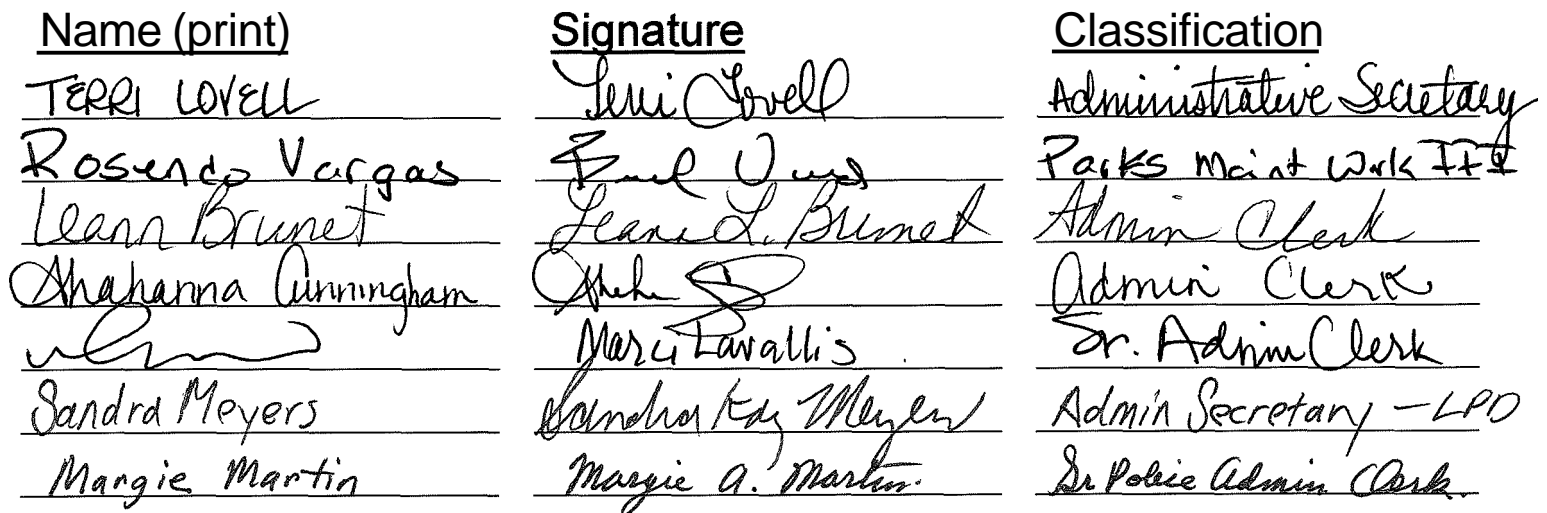 Name (print) Signature Classification
TERRI LOVELL Terri Lovell Administrative Secretary
Rosendo Vargas Parks Maint Work III
Leann Brunet Leann L. Brunet Admin Clerk
Shahanna Cunningham Admin Clerk
Marci Lavallis Sr. Admin Clerk
Sandra Meyers Sandra Kay Meyers Admin Secretary - LPD
Margie Martin Margie A. Martin Sr Police Admin Clerk.